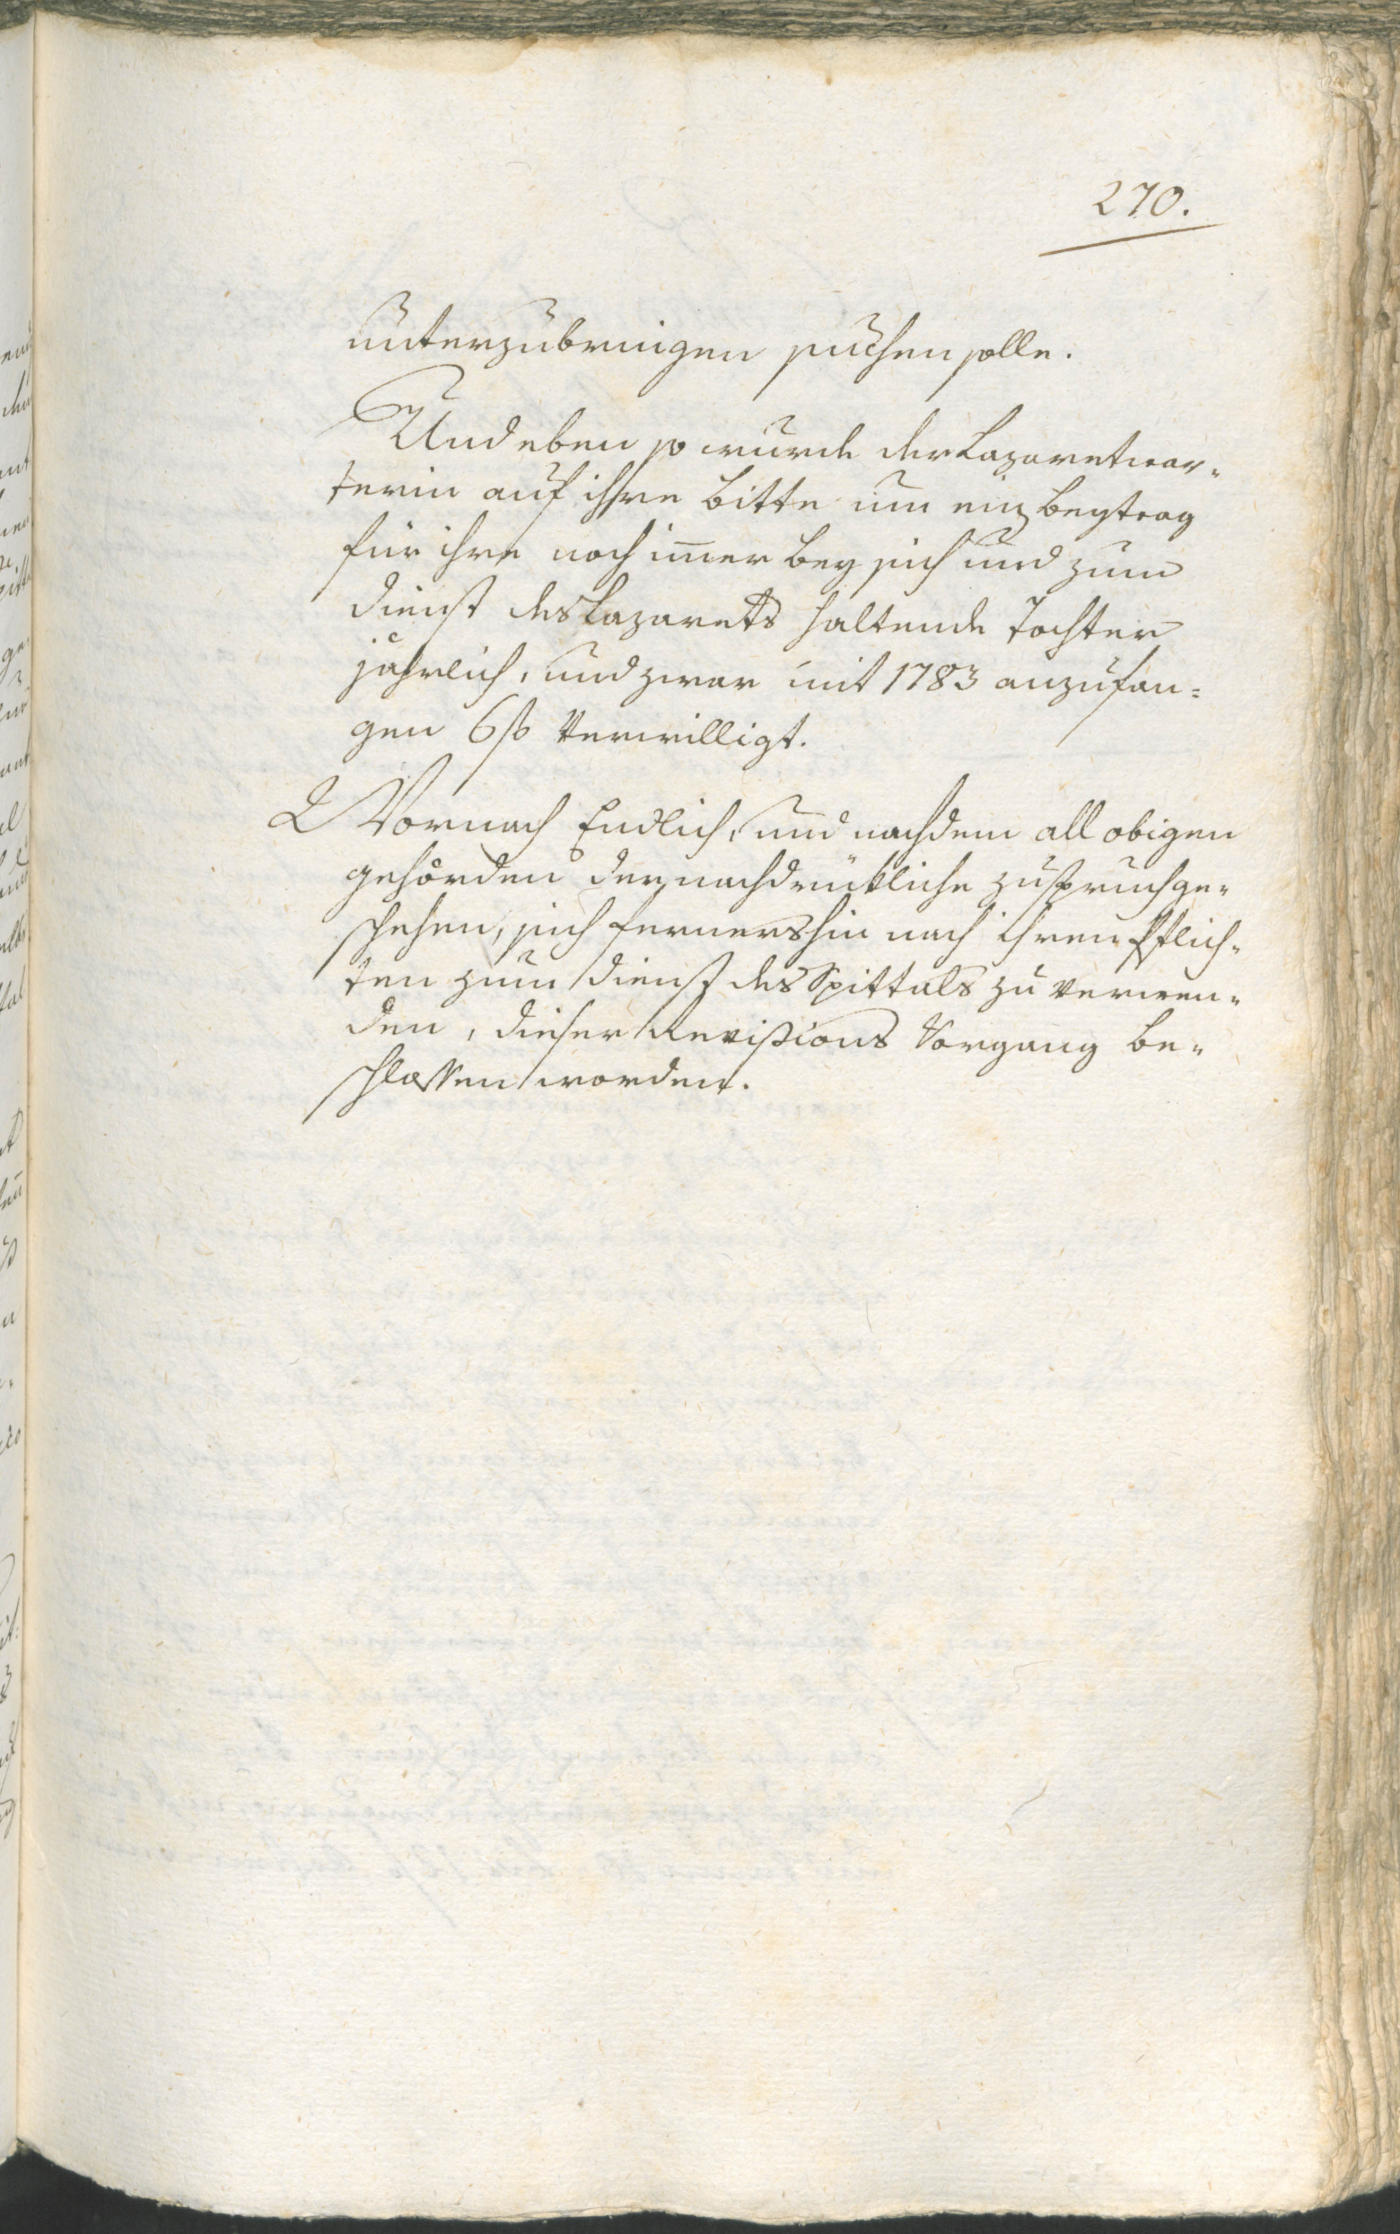 270.
unterzubringen suchen solle.
Und eben so wurde der Lazaretwar-
terin auf ihre Bitte um ein Beytrag
für ihre noch im̅er bey sich und zum
Dienst des Lazarets haltende Tochter
jährlich, und zwar mit 1783 anzufan=
gen 6 fl verwilligt.
Wornach Endlich, und nachdem all obigen
gehörden der nachdrükliche Zuspruch ge-
schehen, sich fernershin nach ihren Pflich-
ten zum Dienst des Spittals zu verwen-
den, dieser Revißions Vorgang be-
schlossen worden.